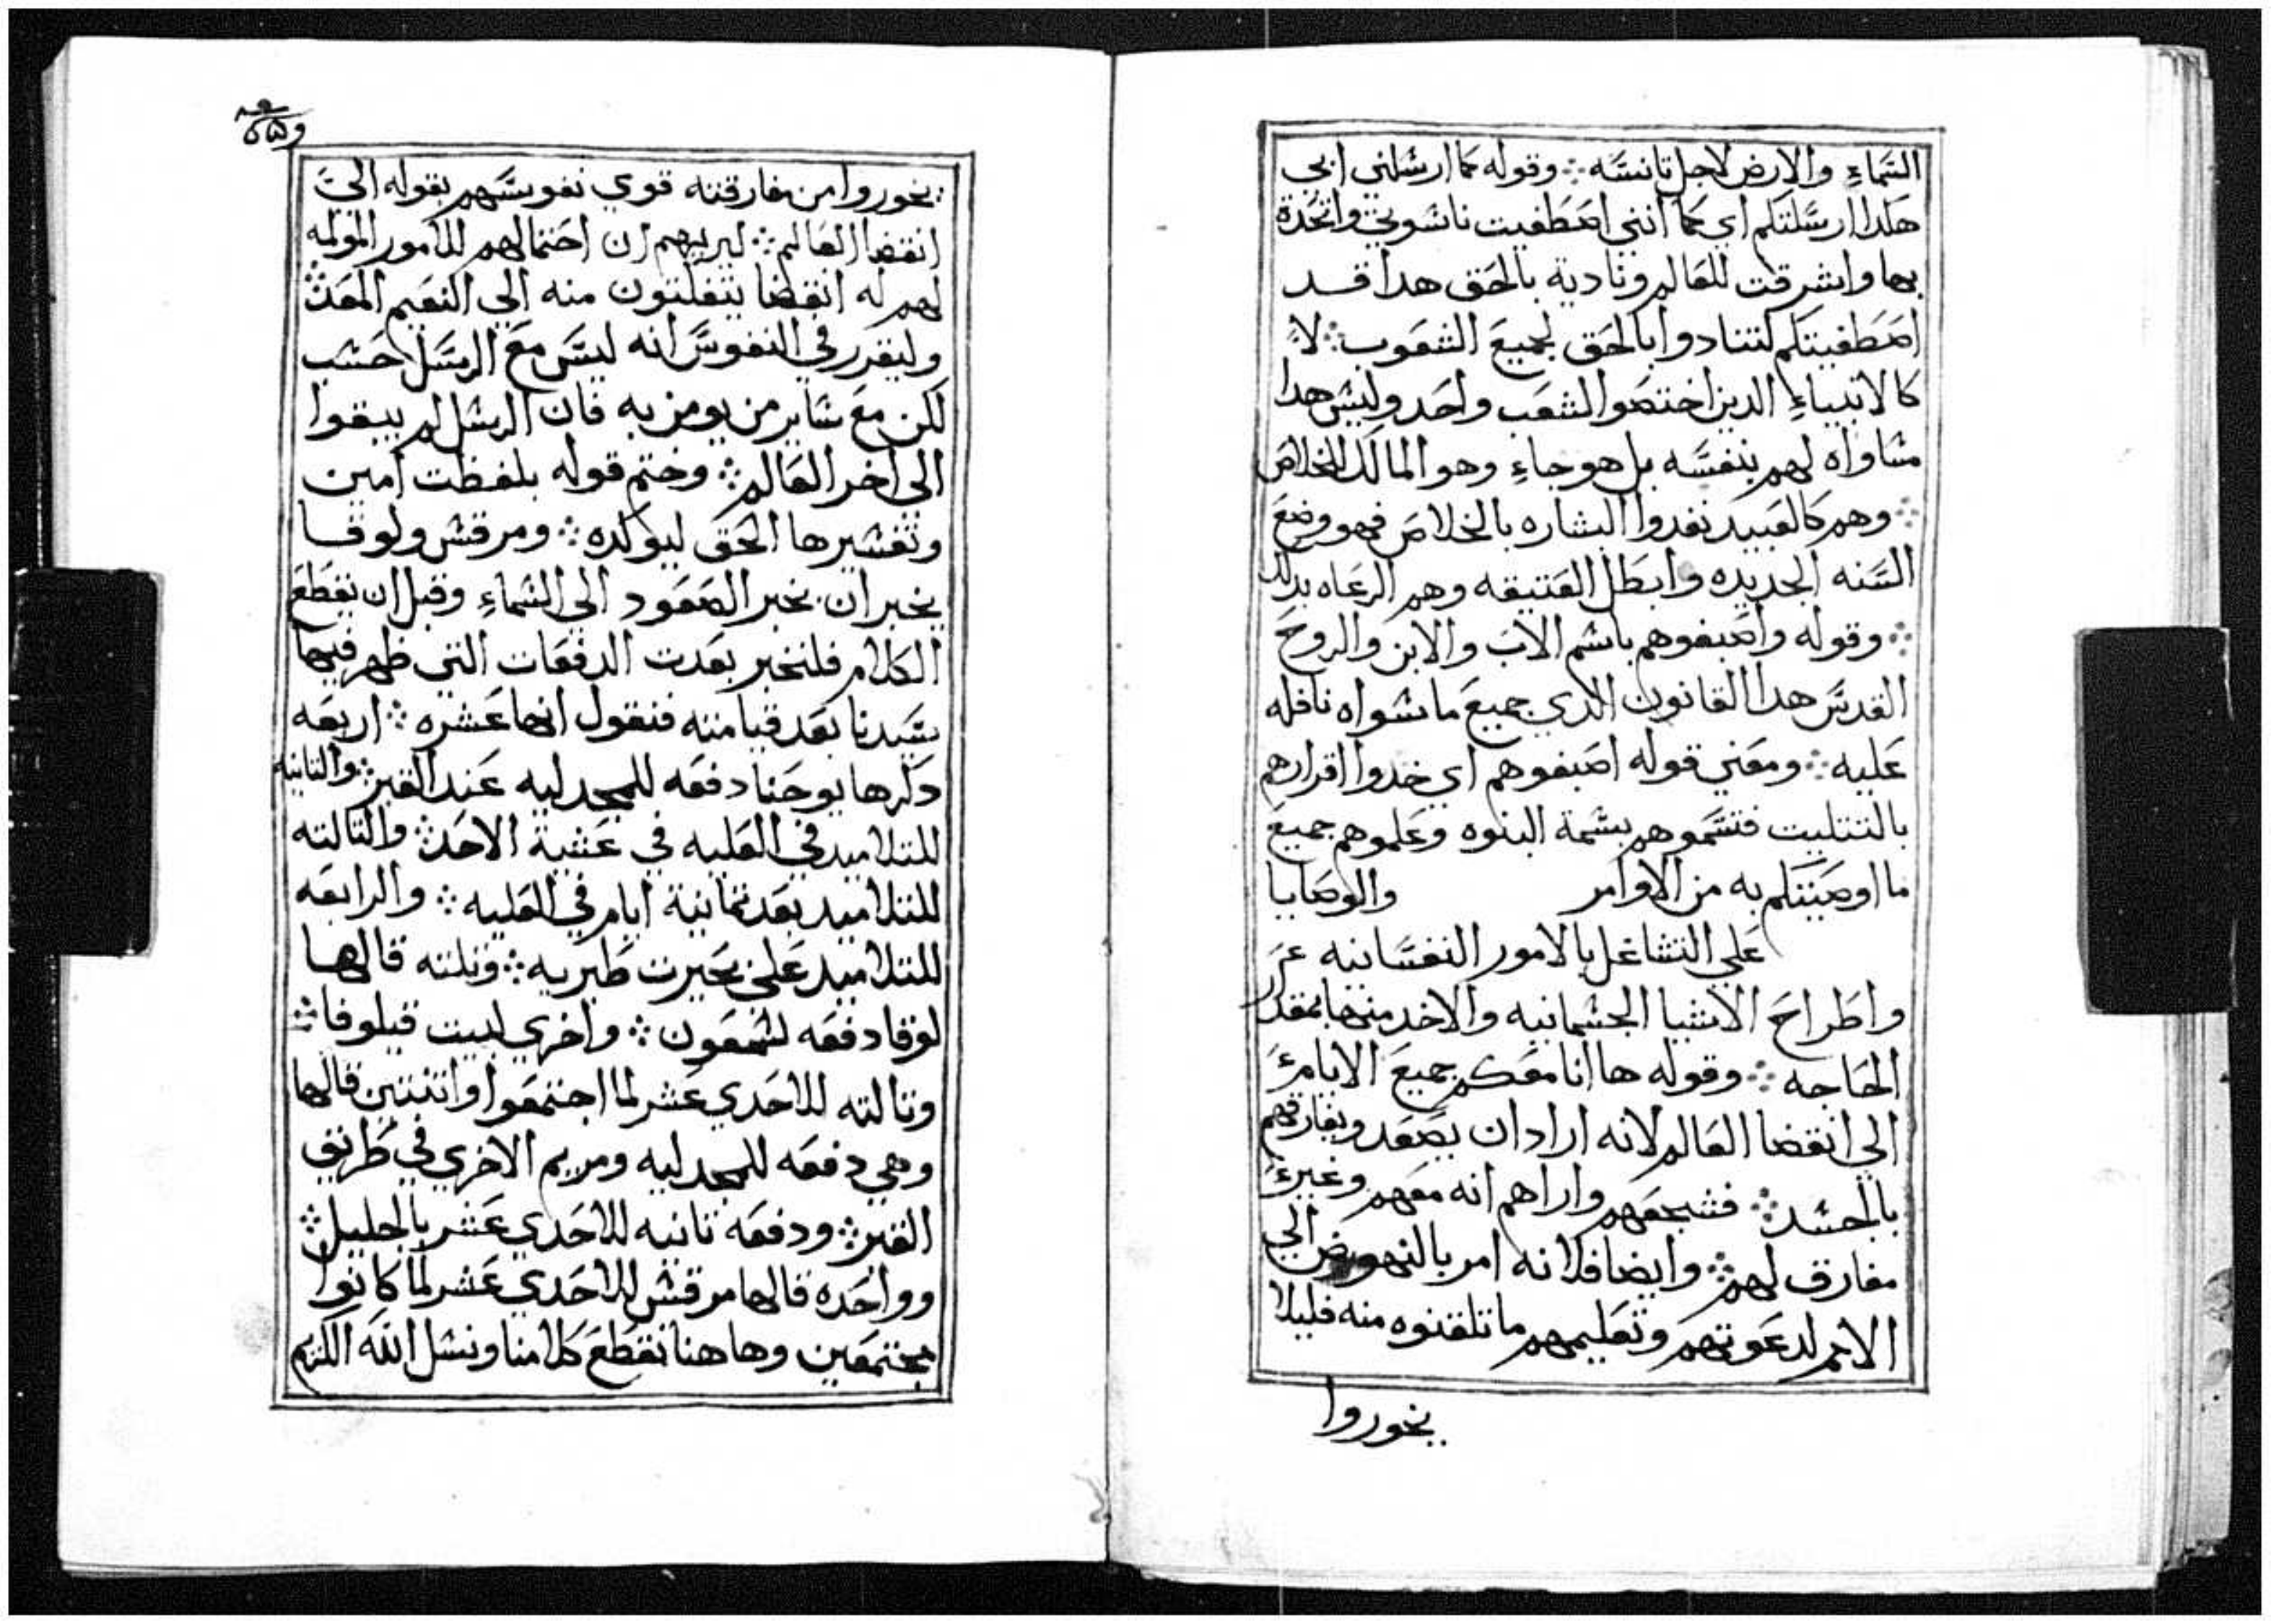 السماء والارض لاجل تانسه ⁘ وقوله كما ارسلني ابي
هكدا ارسلتكم اي كما انني اصطفيت ناسوتي واتحدة
بها واشرقت للعالم وناديه بالحق هدا قد
اصطفيتكم لتنادوا بالحق لجميع الشعوب ⁘ لا
كالانبياء الدين اختصوا لشعب واحد وليس هدا
مساواه لهم بنفسه بل هو جاء وهو المالك للخلاص
⁘ وهم كالعبيد نفدوا البشاره بالخلاص فهو وضع
السنه الجديده وابطل العتيقه وهم الرعاه بدلك
⁘ وقوله واصبغوهم باسم الاب والابن والروح
القدس هدا القانون الدي جميع ما سواه نافله
عليه ⁘ ومعني قوله اصبغوهم اي خدوا اقرارهم
بالتتليت فتسموهم بسمة البنوه وعلموهم جميع
ما اوصيتكم به من الاوامر والوصايا
علي التشاغل بالامور النفسانيه عن
واطراح الاشيا الجسمانيه والاخد منها بمقدار
الحاجه ⁘ وقوله ها انا معكم جميع الايام
الي انقضا العالم لانه اراد ان يصعد ويفارقهم
بالجسد ⁘ فشجعهم واراهم انه معهم وغير
مفارق لهم ⁘ وايضا فلانه امر بالنهوض الي
الامم لدعوتهم وتعليمهم ما تلقنوه منه فليلا
يخوروا
يخوروا من مفارقته قوي نفوسهم بقوله الي
انقضا العالم ⁘ ليريهم ان احتمالهم للامور المولمه
لهم له انقضا يتفلتون منه الي النعيم المعد ⁘
وليقرر في النفوس انه ليس مع الرسل حسب
لكن مع ساير من يومن به فان الرسل لم يبقوا
الي اخر العالم ⁘ وختم قوله بلفظت امين
وتفسيرها الحق ليوكده ⁘ ومرقس ولوقا
يخبران بخبر الصعود الي السماء وقبل ان نقطع
الكلام فلنخبر بعدت الدفعات التي ظهر فيها
سيدنا بعد قيامته فنقول انها عشره ⁘ اربعه
دكرها يوحنا دفعه للمجدليه عند القبر ⁘ والتانيه
للتلاميد في العليه في عشية الاحد ⁘ والتالته
للتلاميد بعد تمانية ايام في العليه ⁘ والرابعه
للتلاميد علي بحيرت طبريه ⁘ وتلته قالها
لوقا دفعه لشمعون ⁘ واخري لبيت قيلوفا ⁘
وتالته للاحدي عشر لما اجتمعوا واتنتين قالها
وهي دفعه للمجدليه ومريم الاخري في طريق
القبر ⁘ ودفعه تانيه للاحدي عشر بالجليل ⁘
وواحده قالها مرقس للاحدي عشر لما كانوا
مجتمعين وهاهنا نقطع كلامنا ونسل الله الكريم